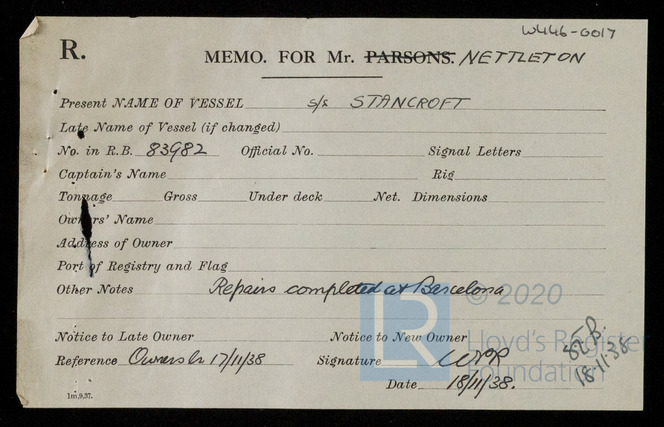 W446-G017
R. MEMO. FOR Mr. PARSONS. NETTLETON
Present NAME OF VESSEL s/s STANCROFT
Late Name of Vessel (if changed)
No. in R.B. 83982 Official No. Signal Letters
Captain's Name Rig
Tonnage Gross Under deck Net. Dimensions
Owners' Name
Address of Owner
Port of Registry and Flag
Other Notes Repairs completed at Barcelona
© 2020
Lloyd's Register
Foundation
Notice to Late Owner Notice to New Owner
Reference Owners lr 17/11/38 Signature
Date 18/11/38.
18.11.38
1m.9.37.